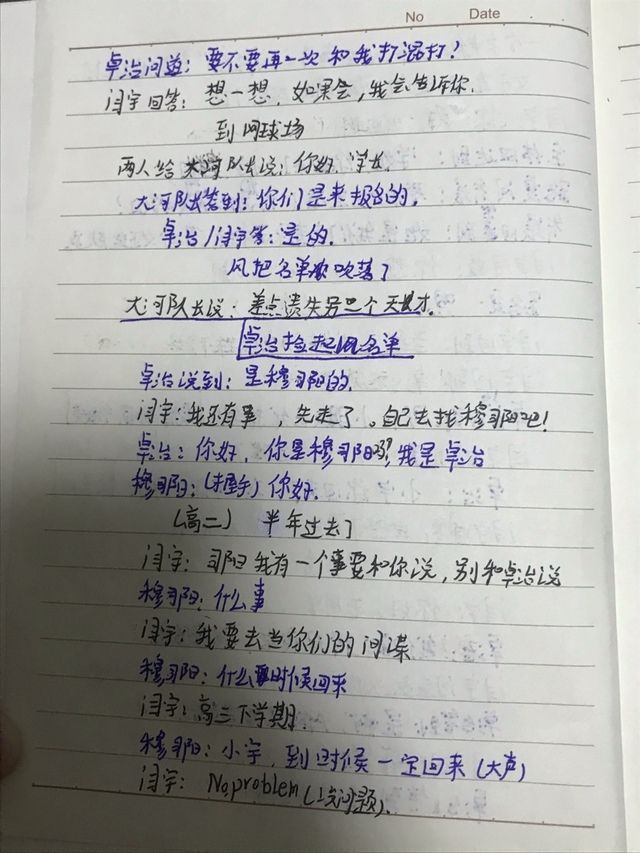 No Date
卓治问道：要不要再一次和我打混打！
闫宇回答：想一想，如果会，我会告诉你.
到网球场
两人给大河队长说：你好，学长
大河队长答到：你们是来报名的，
卓治/闫宇答：是的.
风把名单吹落了
大河队长说：差点遗失另一个天才.
卓治捡起名单
卓治说到：是穆司阳的.
闫宇：我还有事，先走了。自己去找穆司阳吧！
卓治：你好，你是穆司阳吗？我是卓治
穆司阳：(握手) 你好.
(高二) 半年过去了
闫宇：司阳我有一个事要和你说，别和卓治说
穆司阳：什么事
闫宇：我要去当你们的间谍
穆司阳：什么时候回来
闫宇：高三下学期.
穆司阳：小宇，到时候一定回来 (大声)
闫宇： No problem (没问题).